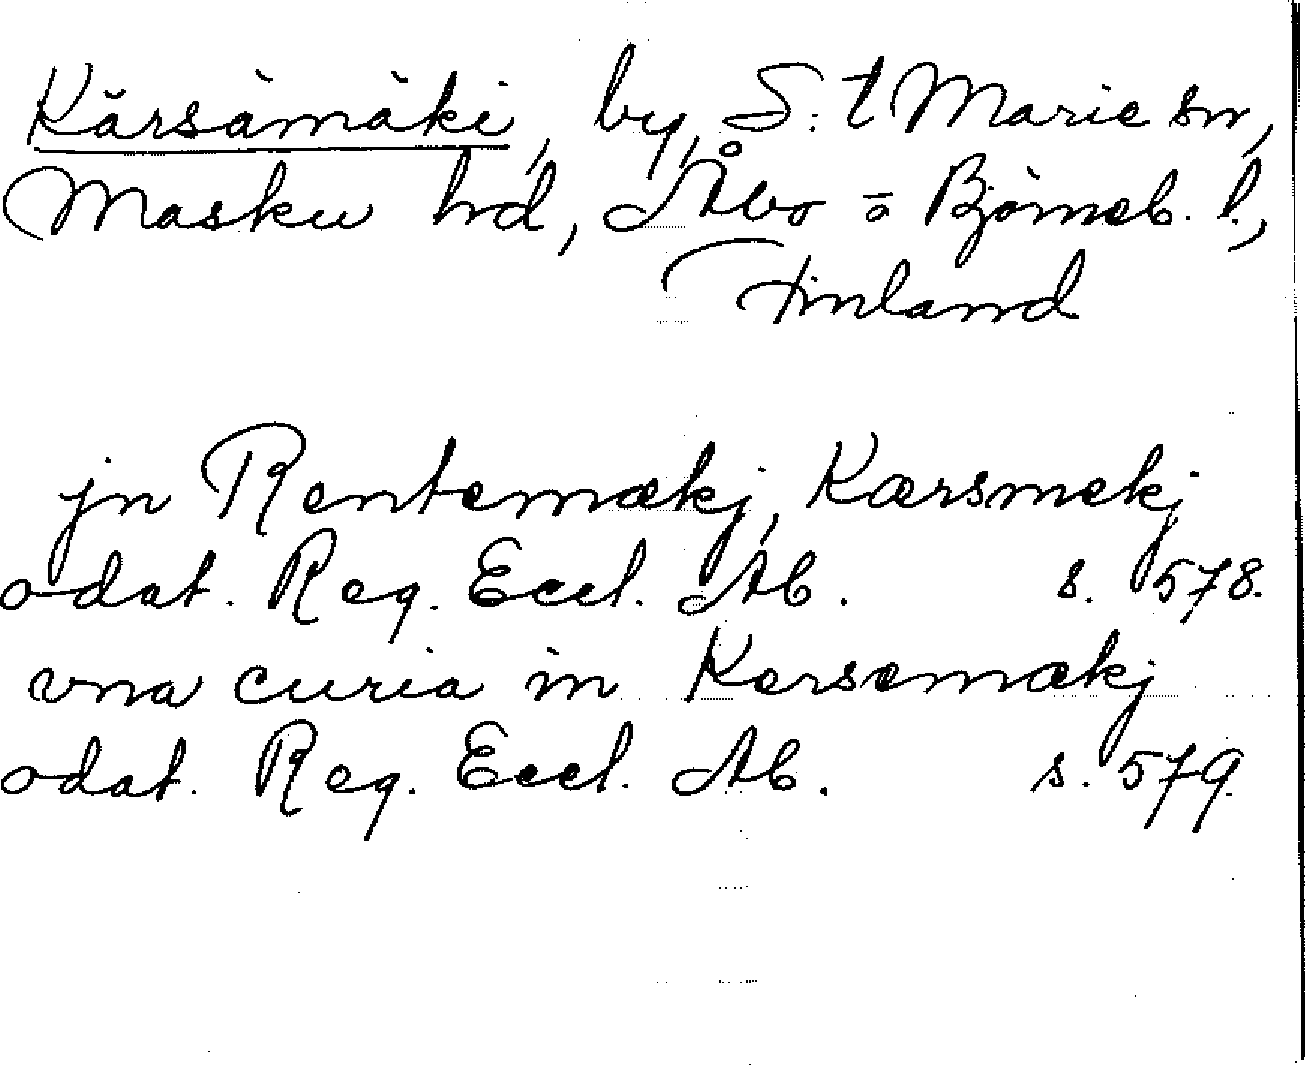 Kärsämäki, by, S:t Marie sn,
Masku hd, Åbo o Björneb. l.,
Finland
jn Rentemækj, Kærsmekj
odat. Reg. Eccl. Ab. s. 578.
vna curia in Kersemækj
odat. Reg. Eccl. Ab. s. 579.